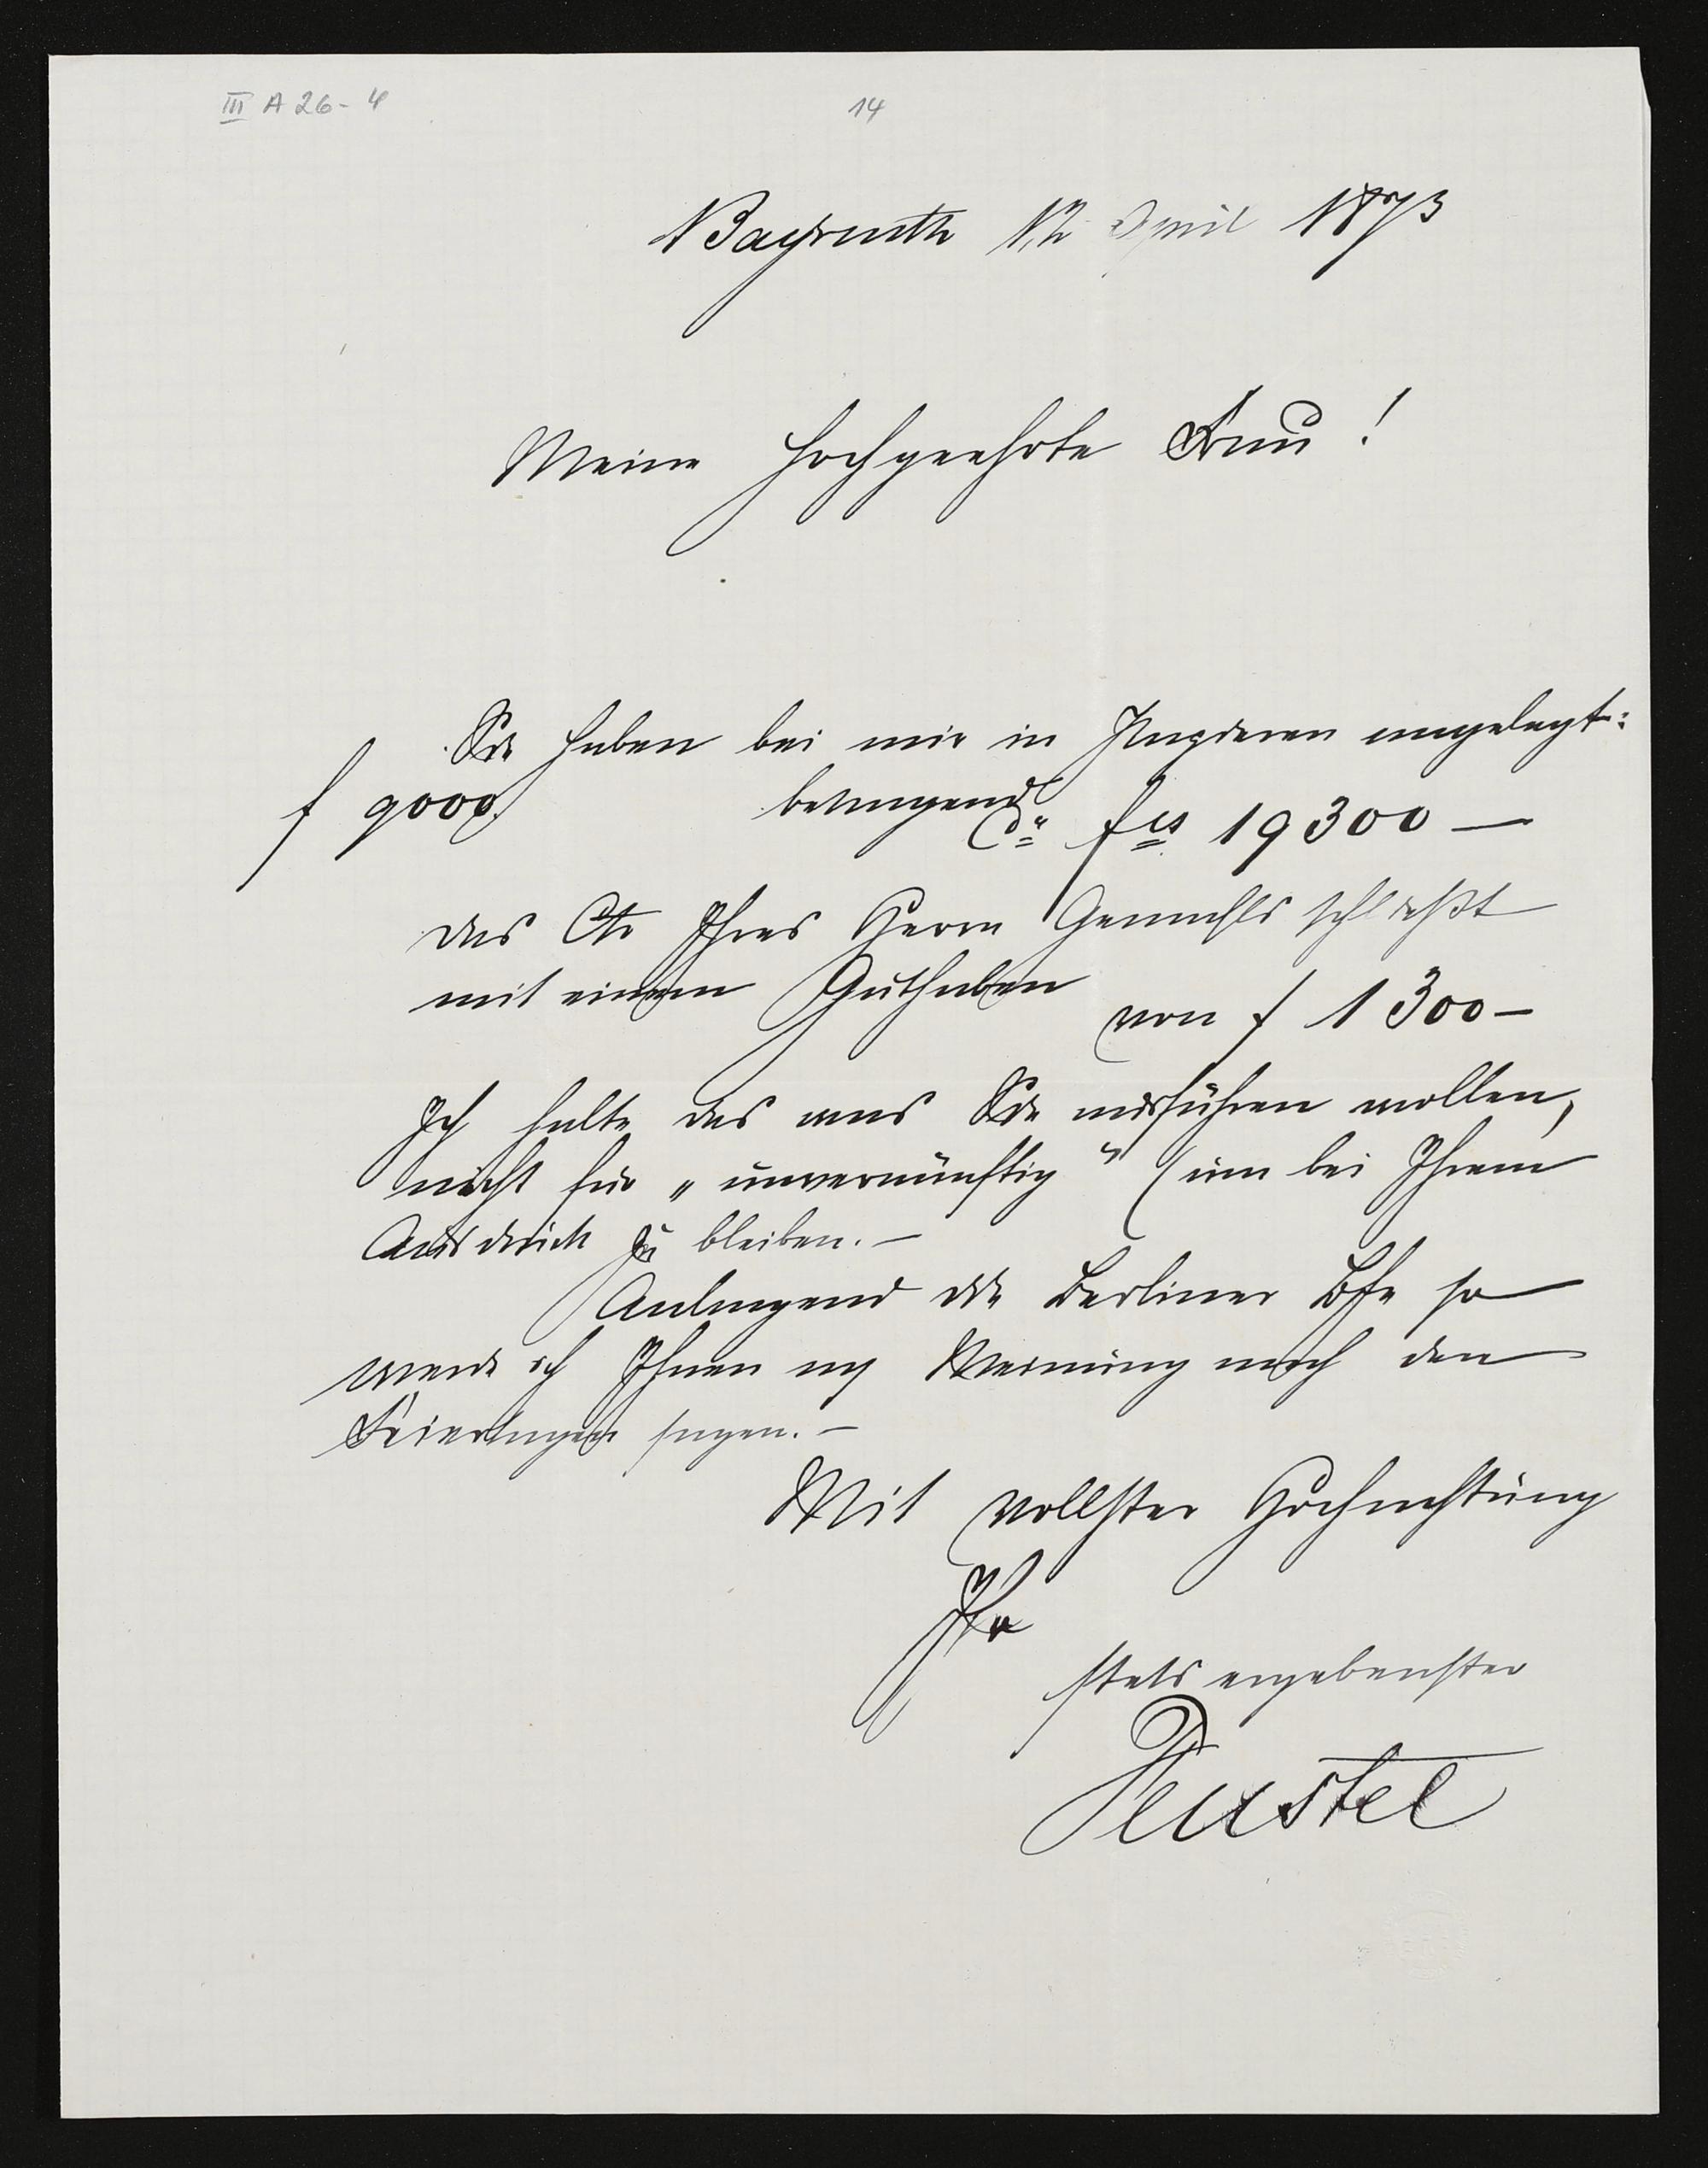 III A 26-4
14
Bayreuth 12 April 1873
Meine hochgeehrte Frau!
Sie haben bei mir in Papieren angelegt:
f 9000. betragend
Ca fcs 19300 —
das Cto Ihres Herrn Gemahls schließt
mit einem Guthaben
von f 1300 —
Ich halte das was Sie ausführen wollen,
nicht für „unvernünftig" (um bei Ihrem
Ausdruck zu bleiben. —
Anlangend die Berliner so
werde ich Ihnen Meinung nach den
Feiertagen sagen. —
Mit vollster Hochachtung
Ihr
stets ergebenster
Feustel